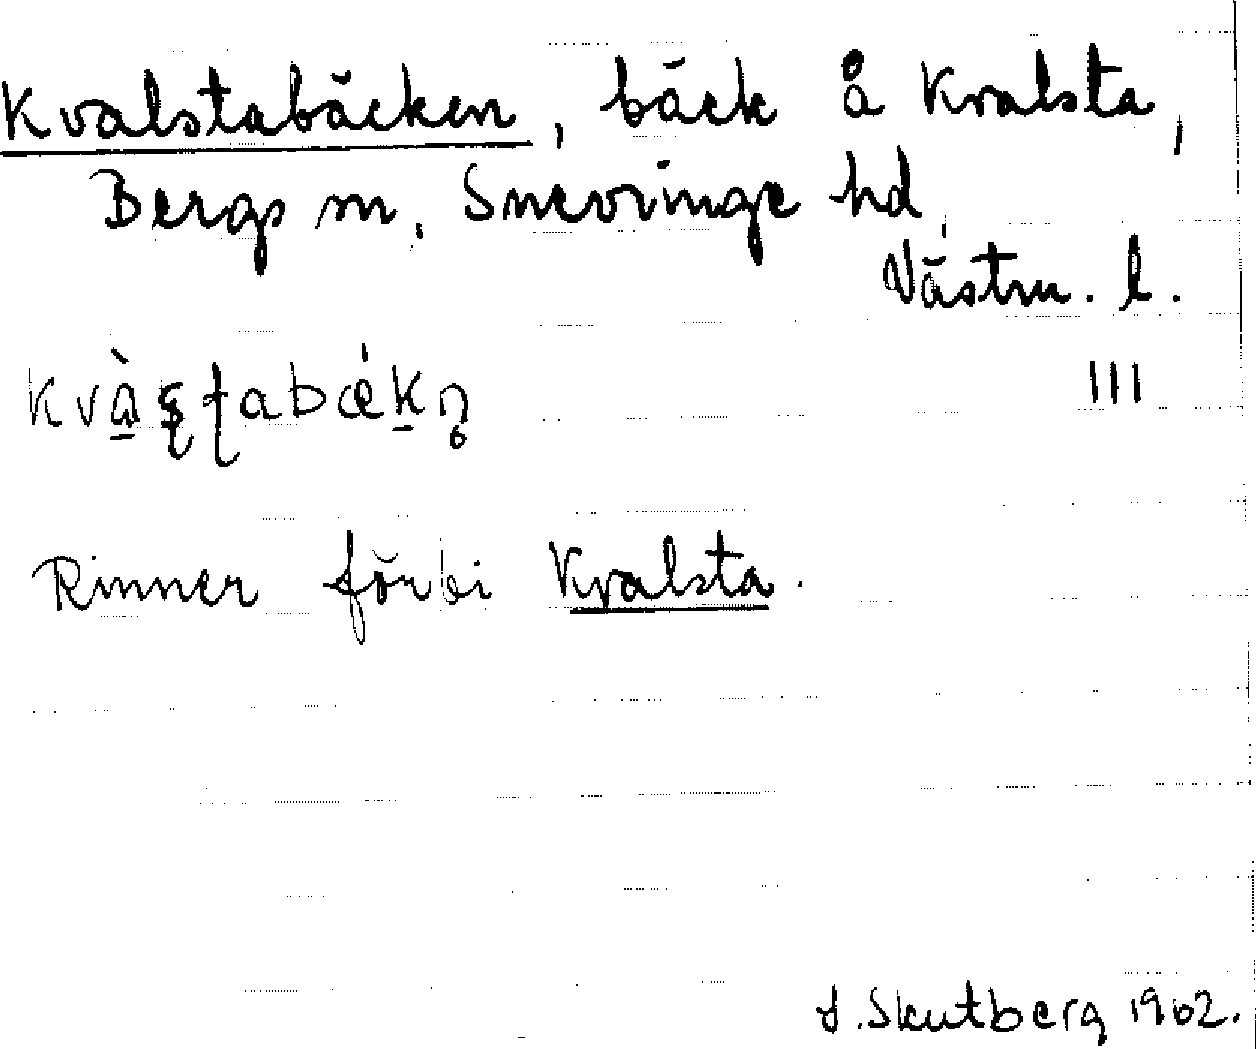 Kvalstabäcken, bäck å Kvalsta,
Bergs sn, Snevringe hd,
Västm. l.
kvàʂʈabǽkn̥
III
Rinner förbi Kvalsta.
S. Skutberg 1962.